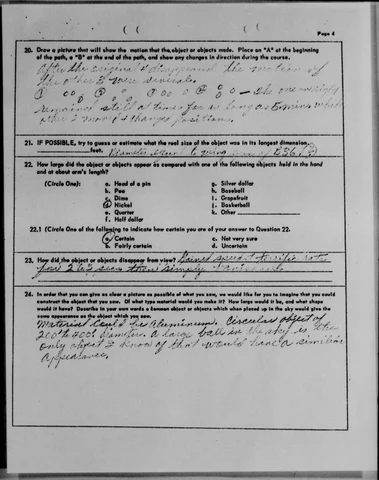 Page 4
20. Draw a picture that will show the motion that the object or objects made. Place an "A" at the beginning
of the path, a "B" at the end of the path, and show any changes in direction during the course.
After the original disappeared the motion of
the other 3 were
The one
remained still at times for as long as 5 mins while
other 2 moved & changed positions.
21. IF POSSIBLE, try to guess or estimate what the real size of the object was in its longest dimension.
feet. Diameter B36
22. How large did the object or objects appear as compared with one of the following objects held in the hand
and at about arm's length?
(Circle One): a. Head of a pin g. Silver dollar
b. Pea h. Baseball
c. Dime i. Grapefruit
d. Nickel j. Basketball
e. Quarter k. Other
f. Half dollar
22.1 (Circle One of the following to indicate how certain you are of your answer to Question 22.
a. Certain c. Not very sure
b. Fairly certain d. Uncertain
23. How did the object or objects disappear from view? Gained speed terrific rate
for 2 to 3 secs then simply
24. In order that you can give as clear a picture as possible of what you saw, we would like for you to imagine that you could
construct the object that you saw. Of what type material would you make it? How large would it be, and what shape
would it have? Describe in your own words a common object or objects which when placed up in the sky would give the
same appearance as the object which you saw.
Material could be Aluminum. Circular object of
200 to 400' diameter. A large ball in the sky is the
only object I know of that would have a similar
appearance.